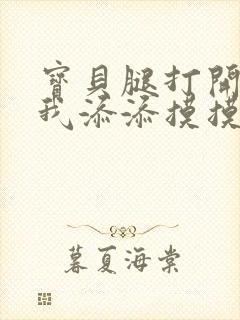 寶貝腿打開
我添添摸摸
暮夏海棠